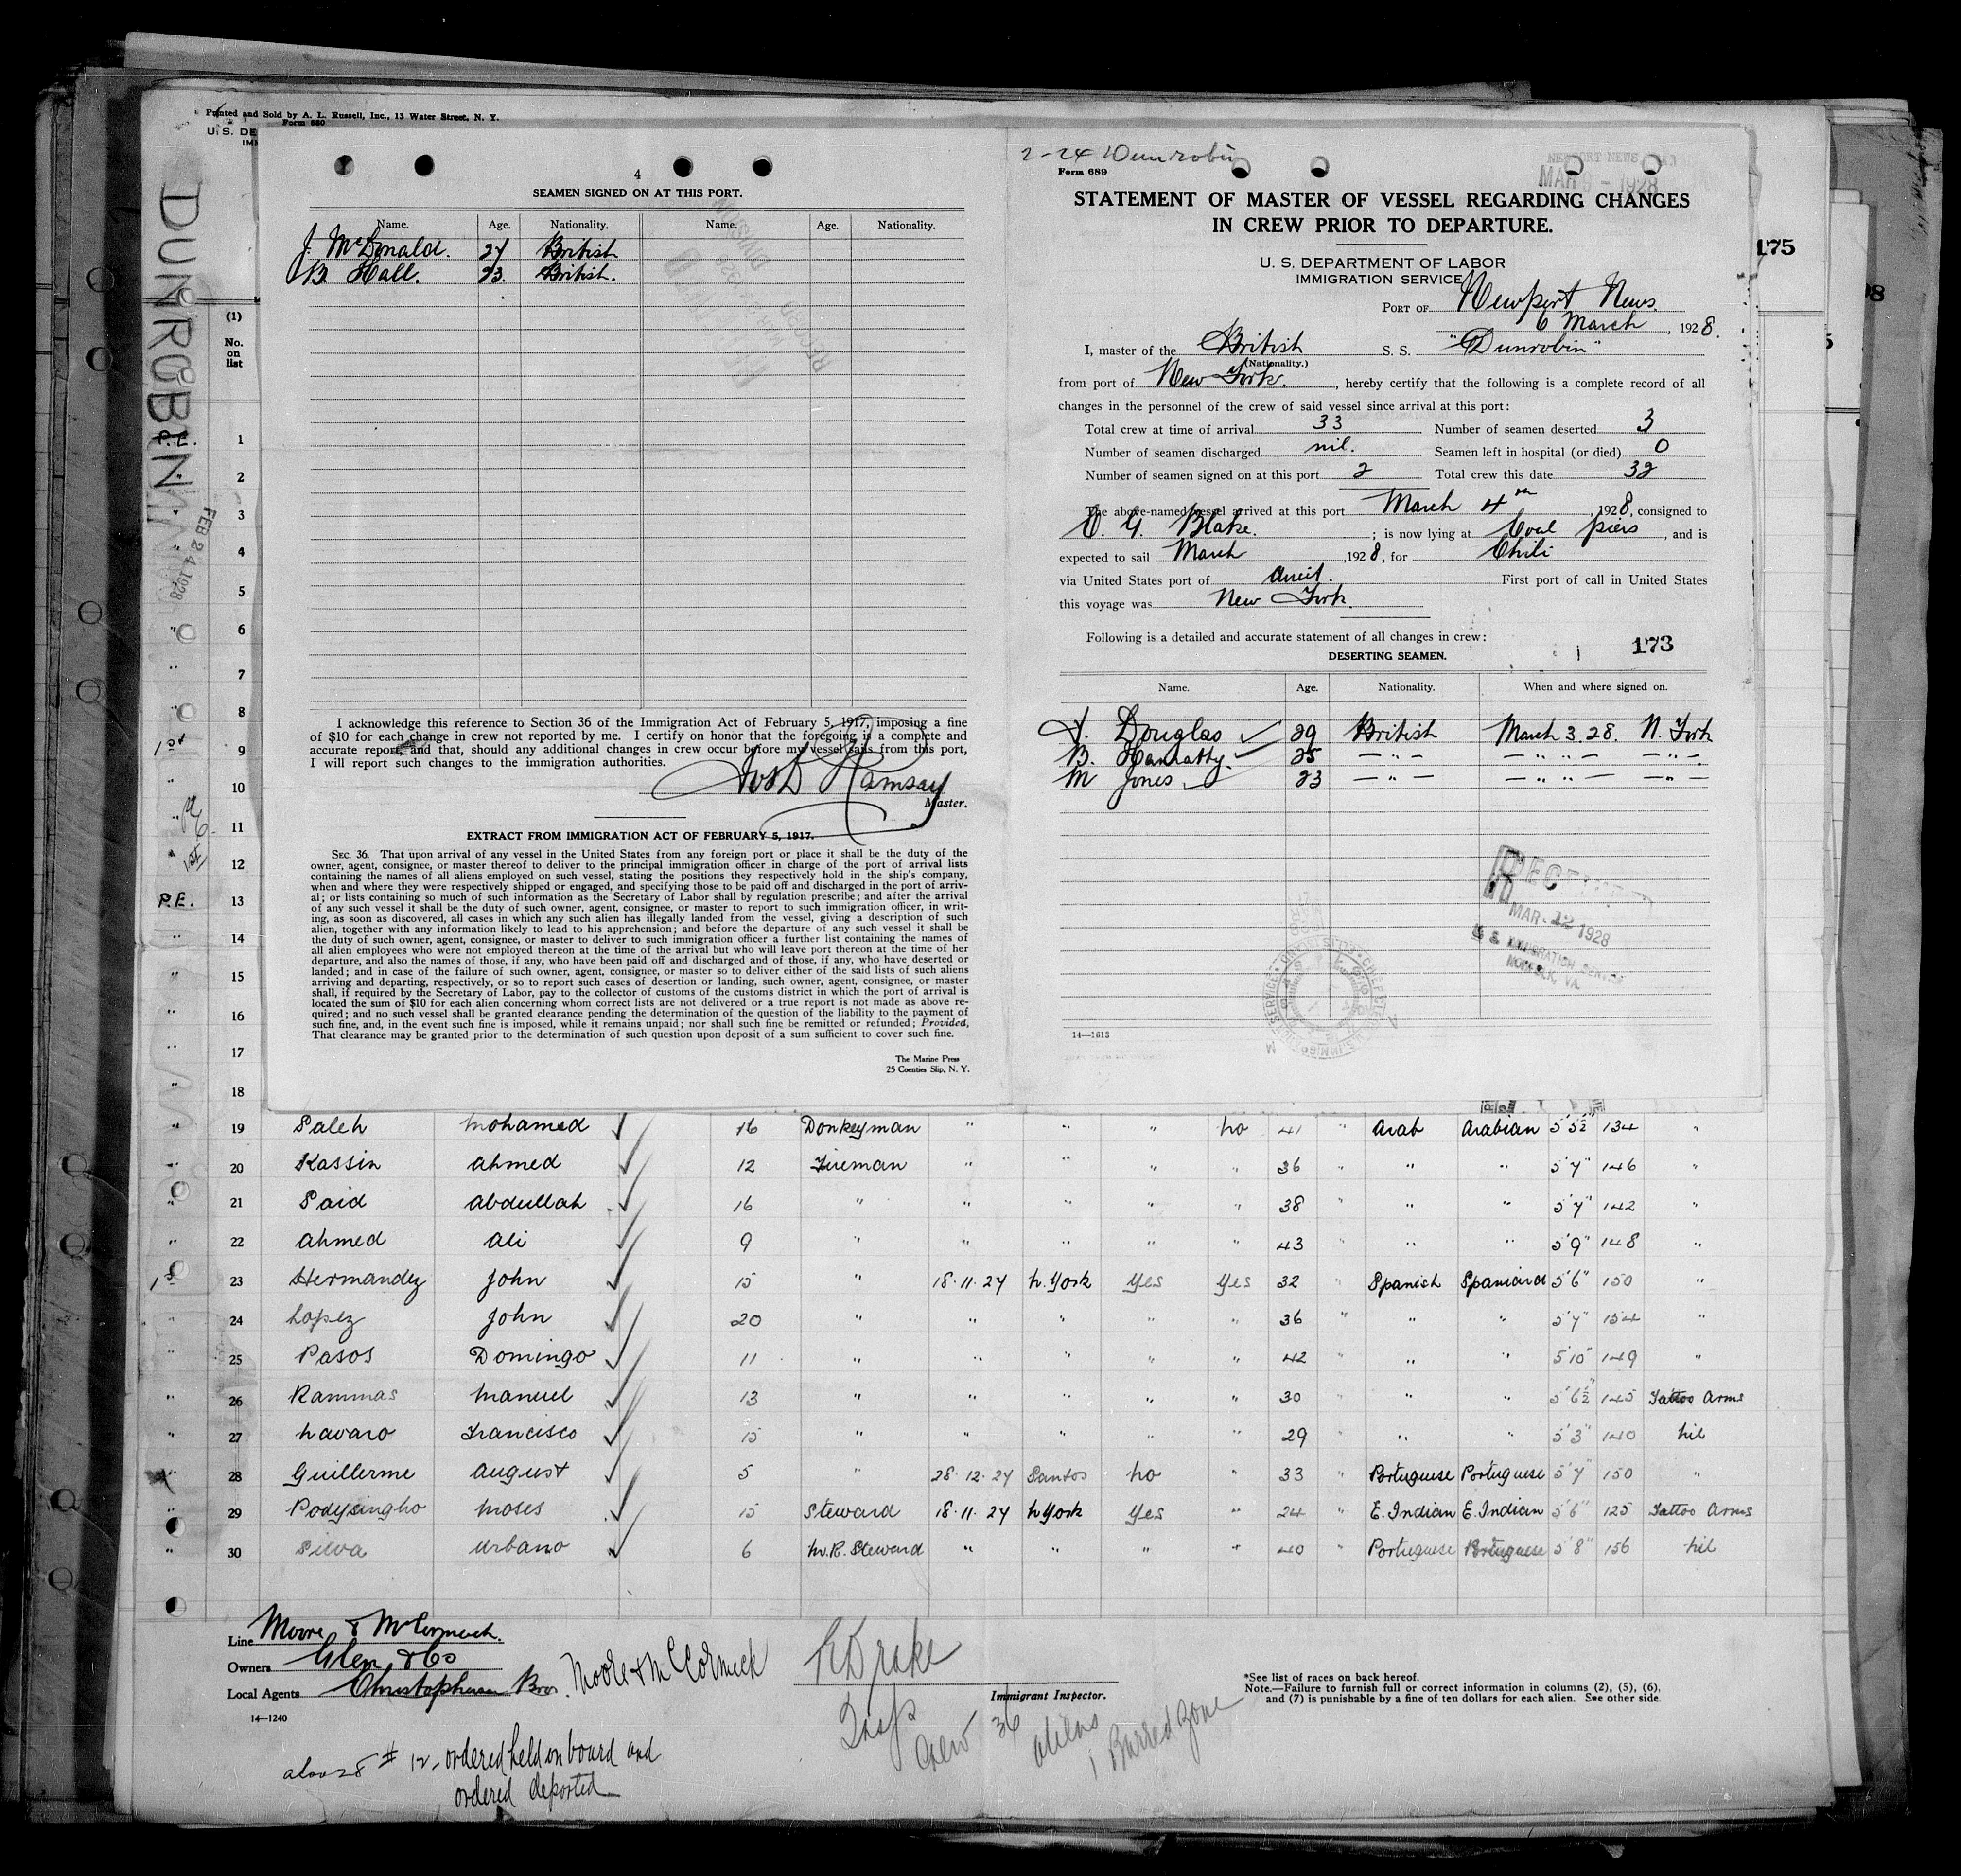 Printed and Sold by A. L. Russell, Inc., 13 Water Street, N. Y.
Form 680
U. S. DE
IMM
DUNROBIN
FEB 24 1928
(1)
No.
on
list
4
SEAMEN SIGNED ON AT THIS PORT.
Name. Age. Nationality. Name. Age. Nationality.
J. McDonald. 27 British
B. Hall. 23. British.
I acknowledge this reference to Section 36 of the Immigration Act of February 5, 1917, imposing a fine
of $10 for each change in crew not reported by me. I certify on honor that the foregoing is a complete and
accurate report, and that, should any additional changes in crew occur before my vessel sails from this port,
I will report such changes to the immigration authorities.
Ramsay
Master.
EXTRACT FROM IMMIGRATION ACT OF FEBRUARY 5, 1917.
SEC. 36. That upon arrival of any vessel in the United States from any foreign port or place it shall be the duty of the
owner, agent, consignee, or master thereof to deliver to the principal immigration officer in charge of the port of arrival lists
containing the names of all aliens employed on such vessel, stating the positions they respectively hold in the ship's company,
when and where they were respectively shipped or engaged, and specifying those to be paid off and discharged in the port of arriv-
al; or lists containing so much of such information as the Secretary of Labor shall by regulation prescribe; and after the arrival
of any such vessel it shall be the duty of such owner, agent, consignee, or master to report to such immigration officer, in writ-
ing, as soon as discovered, all cases in which any such alien has illegally landed from the vessel, giving a description of such
alien, together with any information likely to lead to his apprehension; and before the departure of any such vessel it shall be
the duty of such owner, agent, consignee, or master to deliver to such immigration officer a further list containing the names of
all alien employees who were not employed thereon at the time of the arrival but who will leave port thereon at the time of her
departure, and also the names of those, if any, who have been paid off and discharged and of those, if any, who have deserted or
landed; and in case of the failure of such owner, agent, consignee, or master so to deliver either of the said lists of such aliens
arriving and departing, respectively, or so to report such cases of desertion or landing, such owner, agent, consignee, or master
shall, if required by the Secretary of Labor, pay to the collector of customs of the customs district in which the port of arrival is
located the sum of $10 for each alien concerning whom correct lists are not delivered or a true report is not made as above re-
quired; and no such vessel shall be granted clearance pending the determination of the question of the liability to the payment of
such fine, and, in the event such fine is imposed, while it remains unpaid; nor shall such fine be remitted or refunded; Provided,
That clearance may be granted prior to the determination of such question upon deposit of a sum sufficient to cover such fine.
The Marine Press
25 Coenties Slip, N. Y.
2-24 Dunrobin
Form 689
NEWPORT NEWS
MAR 9 - 1928
STATEMENT OF MASTER OF VESSEL REGARDING CHANGES
IN CREW PRIOR TO DEPARTURE.
U. S. DEPARTMENT OF LABOR
IMMIGRATION SERVICE
PORT OF Newport News.
6 March, 1928.
I, master of the British S. S. "Dunrobin"
(Nationality.)
from port of New York., hereby certify that the following is a complete record of all
changes in the personnel of the crew of said vessel since arrival at this port:
Total crew at time of arrival 33 Number of seamen deserted 3
Number of seamen discharged nil. Seamen left in hospital (or died) 0
Number of seamen signed on at this port 2 Total crew this date 32
The above-named vessel arrived at this port March 4th, 1928, consigned to
C. G. Blake.; is now lying at Coal piers, and is
expected to sail March, 1928, for Chili
via United States port of direct. First port of call in United States
this voyage was New York.
Following is a detailed and accurate statement of all changes in crew:
173
DESERTING SEAMEN.
Name. Age. Nationality. When and where signed on.
Douglas 29 British March 3. 28. N. York
B. Hanratty. 25 — " — — " " — — " —
M Jones 23 — " — — " " — — " —
RECEIVED
MAR 12 1928
U. S. IMMIGRATION SERVICE
NORFOLK, VA.
14—1613
175
P.E. 1
2
3
4
5
6
7
8
1st 9
10
11
12
P.E. 13
14
15
16
17
18
" 19 Saleh Mohamed 16 Donkeyman " " " No 41 " Arab Arabian 5'5½ 134 "
" 20 Kassin Ahmed 12 Fireman " " " " 36 " " " 5'7" 146 "
" 21 Said Abdullah 16 " " " " " 38 " " " 5'7" 142 "
" 22 Ahmed Ali 9 " " " " " 43 " " " 5'9" 148 "
1st 23 Hermandez John 15 " 18.11.27 N. York Yes Yes 32 " Spanish Spaniard 5'6" 150 "
" 24 Lopez John 20 " " " " " 36 " " " 5'7" 154 "
" 25 Pasos Domingo 11 " " " " " 42 " " " 5'10" 149 "
" 26 Rammas Manuel 13 " " " " " 30 " " " 5'6½" 145 Tattoo Arms
" 27 Navaro Francisco 15 " " " " " 29 " " " 5'3" 140 Nil
28 Guillerme August 5 " 28.12.27 Santos No " 33 " Portuguese Portuguese 5'7" 150 "
" 29 Podysingho Moses 15 Steward 18.11.27 N York Yes " 24 " E. Indian E. Indian 5'6" 125 Tattoo Arms
" 30 Silva Urbano 6 M.R. Steward " " " " 40 " Portuguese Portuguese 5'8" 156 Nil
Line Moore & McCormack.
Owners Glen & Co
Local Agents Christophersen Bros. Moore & McCormick
14—1240
Drake
Insp
Immigrant Inspector.
Crew 36 aliens
1 Barred Zone
*See list of races on back hereof.
Note.—Failure to furnish full or correct information in columns (2), (5), (6),
and (7) is punishable by a fine of ten dollars for each alien. See other side.
also 28 # 12, ordered held on board and
ordered deported